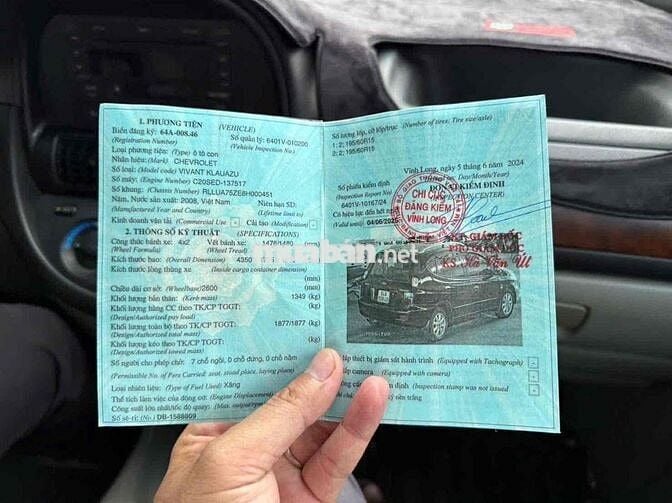 1. PHƯƠNG TIỆN (VEHICLE)
Biển đăng ký: 64A-008.46 Số quản lý: 6401V-010200
(Registration Number) (Vehicle Inspection No.)
Loại phương tiện: (Type) ô tô con
Nhãn hiệu: (Mark) CHEVROLET
Số loại: (Model code) VIVANT KLAUAZU
Số máy: (Engine Number) C20SED-137517
Số khung: (Chassis Number) RLLUA75ZE8H000451
Năm, Nước sản xuất: 2008, Việt Nam Niên hạn SD:
(Manufactured Year and Country) (Lifetime limit to)
Kinh doanh vận tải: (Commercial Use) - Cải tạo: (Modification) -
2. THÔNG SỐ KỸ THUẬT (SPECIFICATIONS)
Công thức bánh xe: 4x2 Vết bánh xe: 1476/1480
(Wheel Formula) (Wheel Tread)
Kích thước bao: (Overall Dimension) 4350
Kích thước lòng thùng xe (Inside cargo container dimension)
(mm)
Chiều dài cơ sở: (Wheelbase) 2600 (mm)
Khối lượng bản thân: (Kerb mass) 1349 (kg)
Khối lượng hàng CC theo TK/CP TGGT: (kg)
(Design/Authorized pay load)
Khối lượng toàn bộ theo TK/CP TGGT: 1877/1877 (kg)
(Design/Authorized total mass)
Khối lượng kéo theo TK/CP TGGT: (kg)
(Design/Authorized towed mass)
Số người cho phép chở: 7 chỗ ngồi, 0 chỗ đứng, 0 chỗ nằm
(Permissible No. of Pers Carried: seat, stood place, laying place)
Loại nhiên liệu: (Type of Fuel Used) Xăng
Thể tích làm việc của động cơ: (Engine Displacement)
Công suất lớn nhất/tốc độ quay: (Max. output/
Số sê-ri: (No.) DB-1588809
Số lượng lốp, cỡ lốp/trục: (Number of tires; Tire size/axle)
1: 2; 195/60R15
2: 2; 195/60R15
Vĩnh Long, ngày 5 tháng 6 năm 2024
Day/Month/Year)
Số phiếu kiểm định
(Inspection Report No) ĐƠN VỊ KIỂM ĐỊNH
6401V-10167/24 CENTER)
Có hiệu lực đến hết ngày
(Valid until) 04/06/2025
CHI CỤC
ĐĂNG KIỂM
VĨNH LONG
muaban.net
lắp thiết bị giám sát hành trình (Equipped with Tachograph) -
lắp camera (Equipped with camera) -
định (Inspection stamp was not issued -